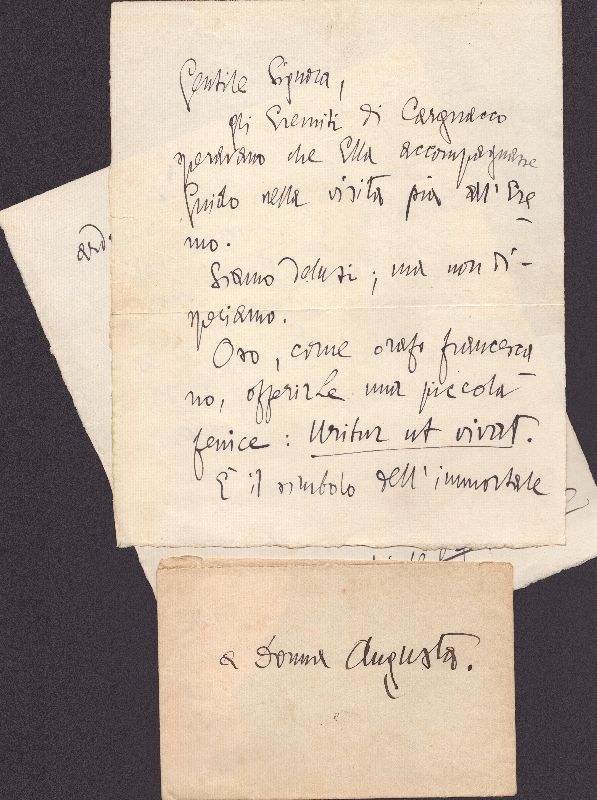 Gentile Signora,
gli Eremiti di Cargnacco
speravano che Ella accompagnasse
Guido nella visita pia all'Ere-
mo.
Siamo delusi; ma non di-
speriamo.
Oso, come orafo francesca-
no, offerirLe una piccola
fenice: Uritur ut vivat.
È il simbolo dell'immortale
a Donna Augusta.